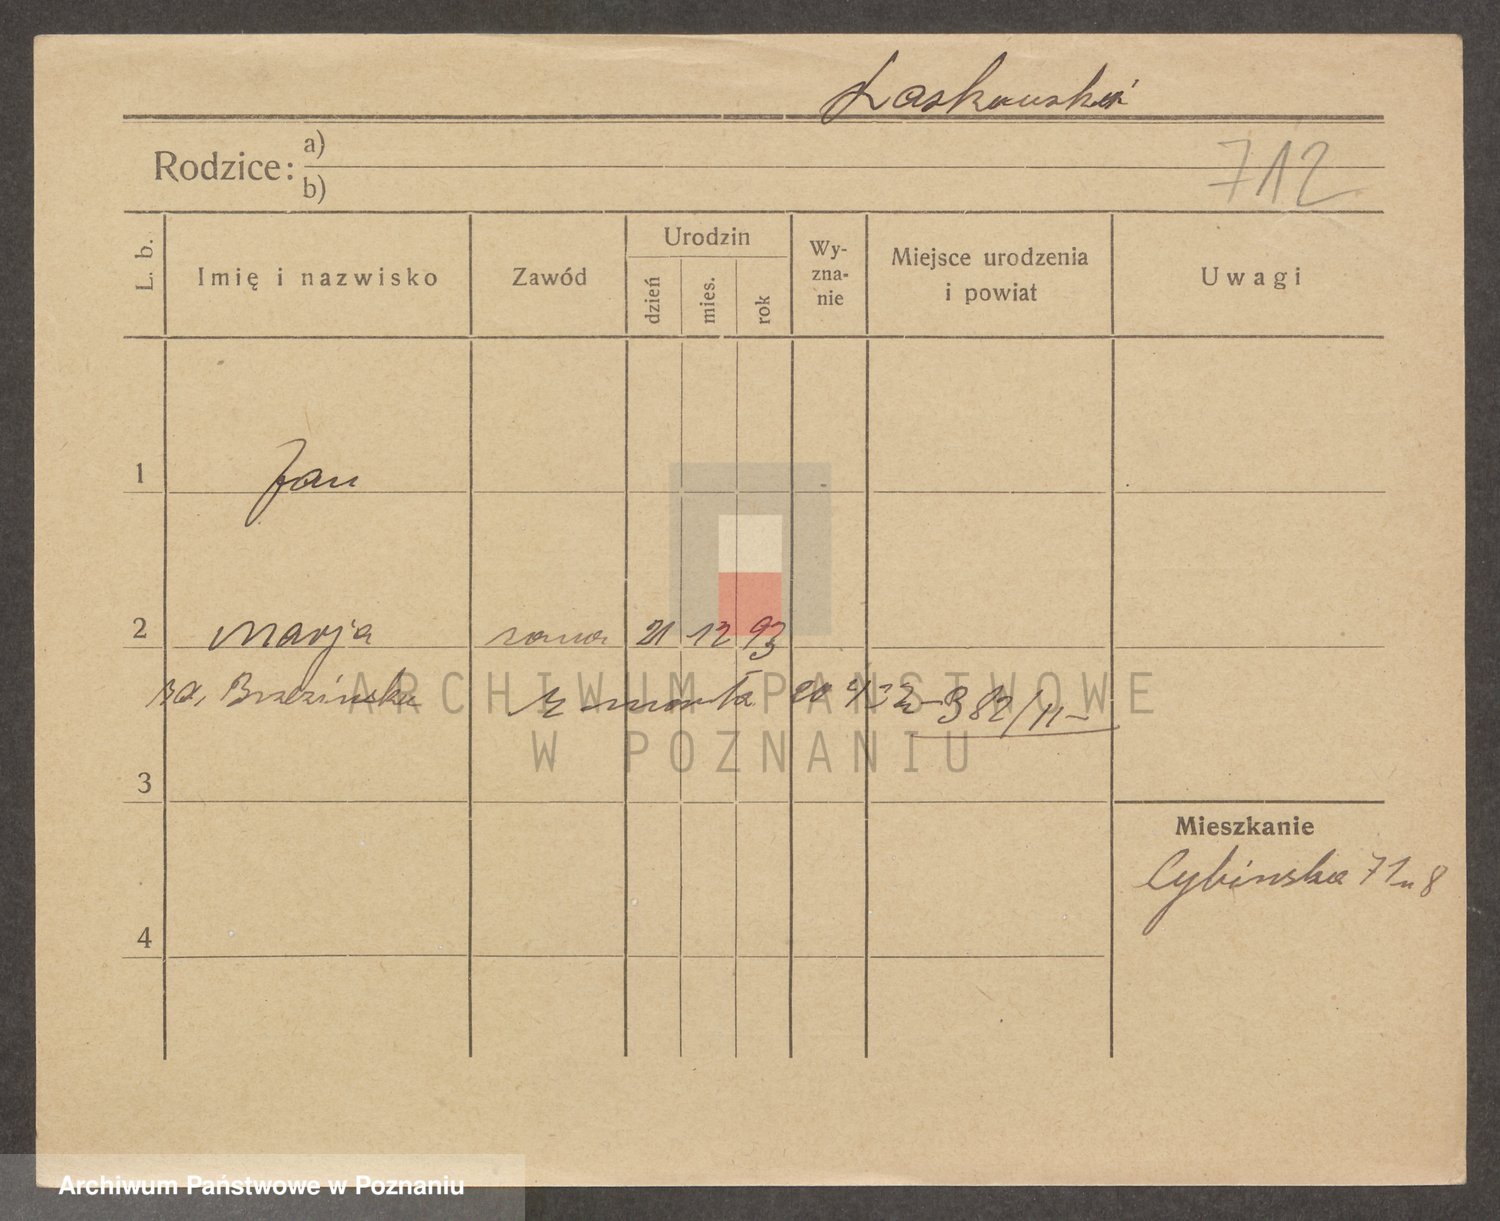 Laskowski
712
Rodzice: a)
b)
L. b.
Imię i nazwisko
Zawód
Urodzin
dzień
mies.
rok
Wy-
zna-
nie
Miejsce urodzenia
i powiat
Uwagi
1 Jan
2 Marja 21 12 93
Brzezińska zmarła 20 382/11-
ARCHIWUM PAŃSTWOWE
W POZNANIU
3
Mieszkanie
Cybińska 7 8
4
Archiwum Państwowe w Poznaniu